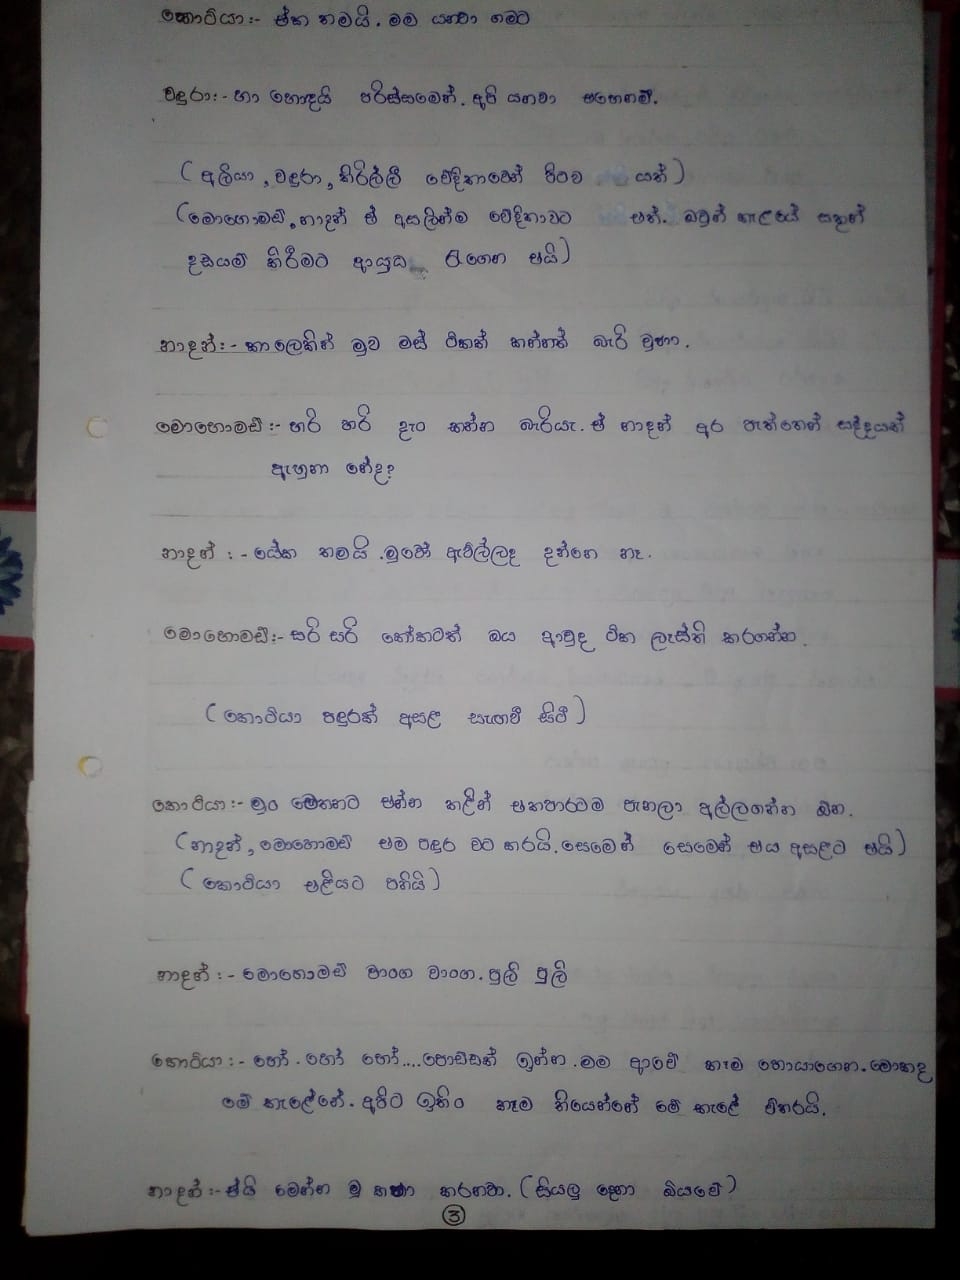 කොටියා:- ඒක තමයි. මම යනවා ගමට
වඳුරා:- හා හොඳයි පරිස්සමෙන්. අපි යනවා එහෙනම්.
(අලියා, වඳුරා, කිරිල්ලී වේදිකාවෙන් පිටව යත්)
(මොහොමඩ්, නාදන් ඒ අසලින්ම වේදිකාවට එත්. ඔවුන් කැළයේ සතුන්
දඩයම් කිරීමට ආයුධ රැගෙන එයි)
නාදන්:- කාලෙකින් මුව මස් ටිකක් කන්නත් බැරි වුණා.
මොහොමඩ්:- හරි හරි දැං කන්න බැරියැ. ඒ නාදන් අර පැත්තෙන් සද්දයක්
ඇහුනා නේද?
නාදන් :- යේක තමයි. මුවෝ ඇවිල්ලද දන්නෙ නෑ.
මොහොමඩ්:- සරි සරි කෝකටත් ඔය ආවුද ටික ලෑස්ති කරගන්න.
(කොටියා පඳුරක් අසල සැඟවී සිටී)
කොටියා:- මුං මෙතනට එන්න කලින් එකපාරටම පැනලා අල්ලගන්න ඕන.
(නාදන්, මොහොමඩ් එම පඳුර වට කරයි. සෙමෙන් සෙමෙන් එය අසළට එයි)
(කොටියා එළියට පනියි)
නාදන් :- මොහොමඩ් වාංග වාංග. පුලි පුලි
කොටියා:- හෝ. හෝ හෝ.... පොඩ්ඩක් ඉන්න. මම ආවේ කෑම හොයාගෙන. මොකද
මේ කැලේනේ. අපිට ඉතිං කෑම තියෙන්නේ මේ කැලේ විතරයි.
නාදන්:- ඒයි මෙන්න මූ කතා කරනවා. (සියලු දෙනා බියවේ)
3